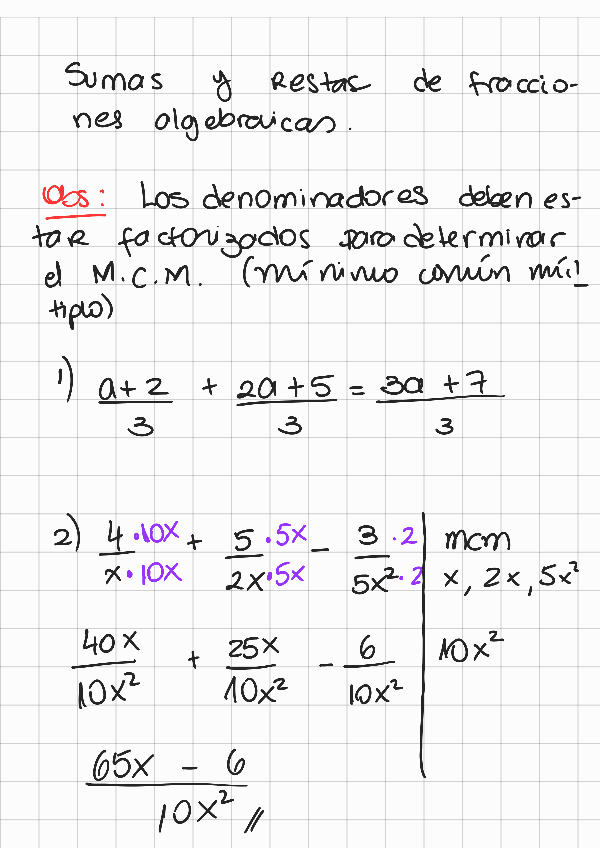 Sumas y Restas de fraccio-
nes algebraicas.
Obs: Los denominadores deben es-
tar factorizados para determinar
el M.C.M. (mínimo común múl
tiplo)
1) (a+2)/3 + (2a+5)/3 = (3a+7)/3
2) (4·10x)/(x·10x) + (5·5x)/(2x·5x) - (3·2)/(5x²·2)
mcm
x, 2x, 5x²
40x/10x² + 25x/10x² - 6/10x²
10x²
(65x - 6)/10x² //